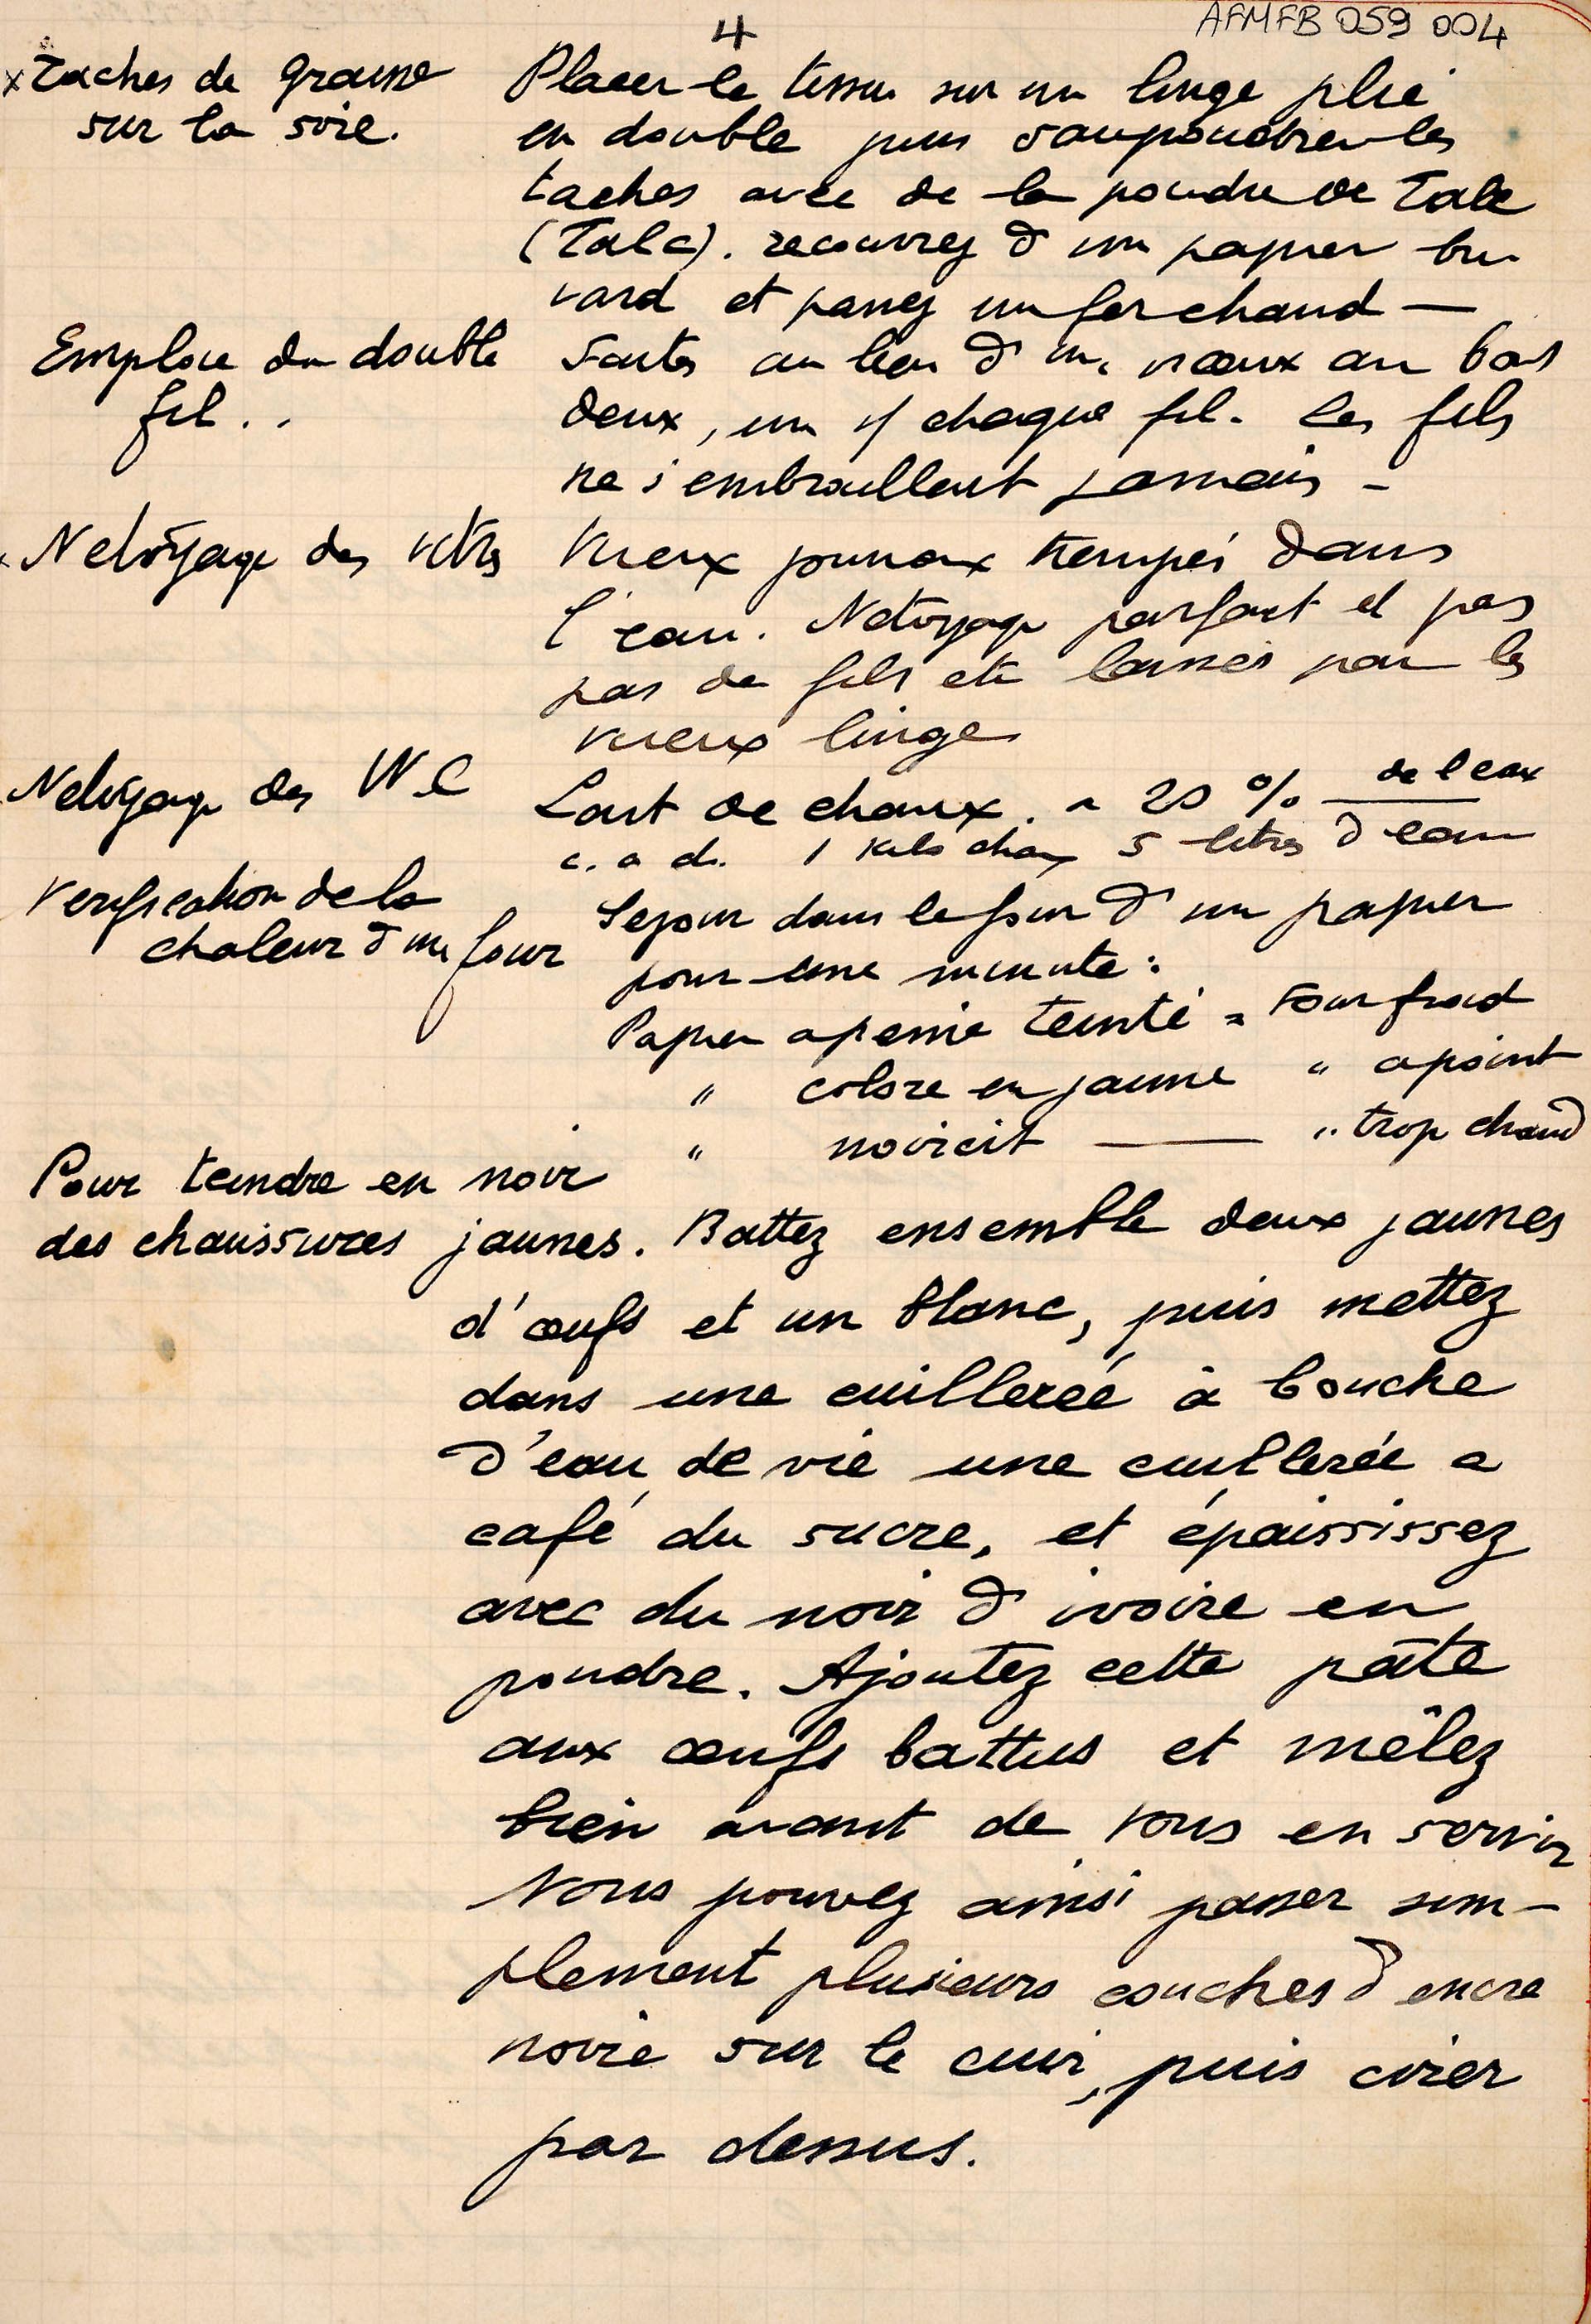 AFMFB 059 004
4
x Taches de graisse
sur la soie.
Placer le tissu sur un linge plié
en double puis saupoudrer les
taches avec de la poudre de Talc
(Talc). recouvrez d'un papier bu
vard et passez un fer chaud —
Emploie du double
fil . .
Faites au lieu d'un nœux au bas
deux, un s/ chaque fil. Les fils
ne s'embrouillent jamais -
x Netoyage des vitres
Vieux journaux trempés dans
l'eau. Netoyage parfait et pas
pas de fils etc laissés par les
vieux linge
Netoyage des W.C
Lait de chaux. a 20 % de l eau
c. a d. 1 kilo chaux 5 litres d eau
Verification de la
chaleur d'un four
Sejour dans le four d'un papier
pour une minute :
Papier a peine teinté = Four froid
" colore en jaune " a point
" noircit — " trop chaud
Pour teindre en noir
des chaussures jaunes. Battez ensemble deux jaunes
d'œufs et un blanc, puis mettez
dans une cuillereé à bouche
d'eau de vie une cuillerée a
café du sucre, et épaississez
avec du noir d'ivoire en
poudre. Ajoutez cette pâte
aux œufs battus et mêlez
bien avant de vous en servir
Vous pouvez ainsi passer sim-
plement plusieurs couches d encre
noire sur le cuir, puis cirer
par dessus.